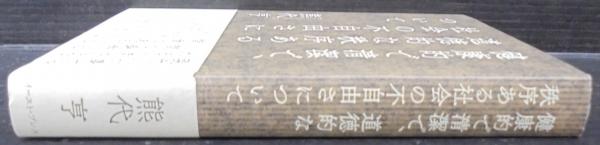 健康的で清潔で、道徳的な
秩序ある社会の不自由さについて
熊代 亨
イースト・プレス
健康的で、清潔で、
道徳的な秩序ある
社会の不自由さに
ついて
熊代亨